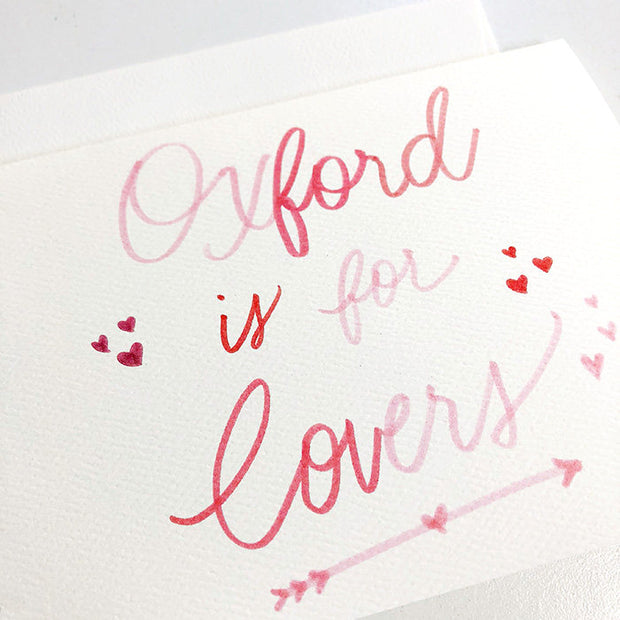 Oxford
is for
lovers